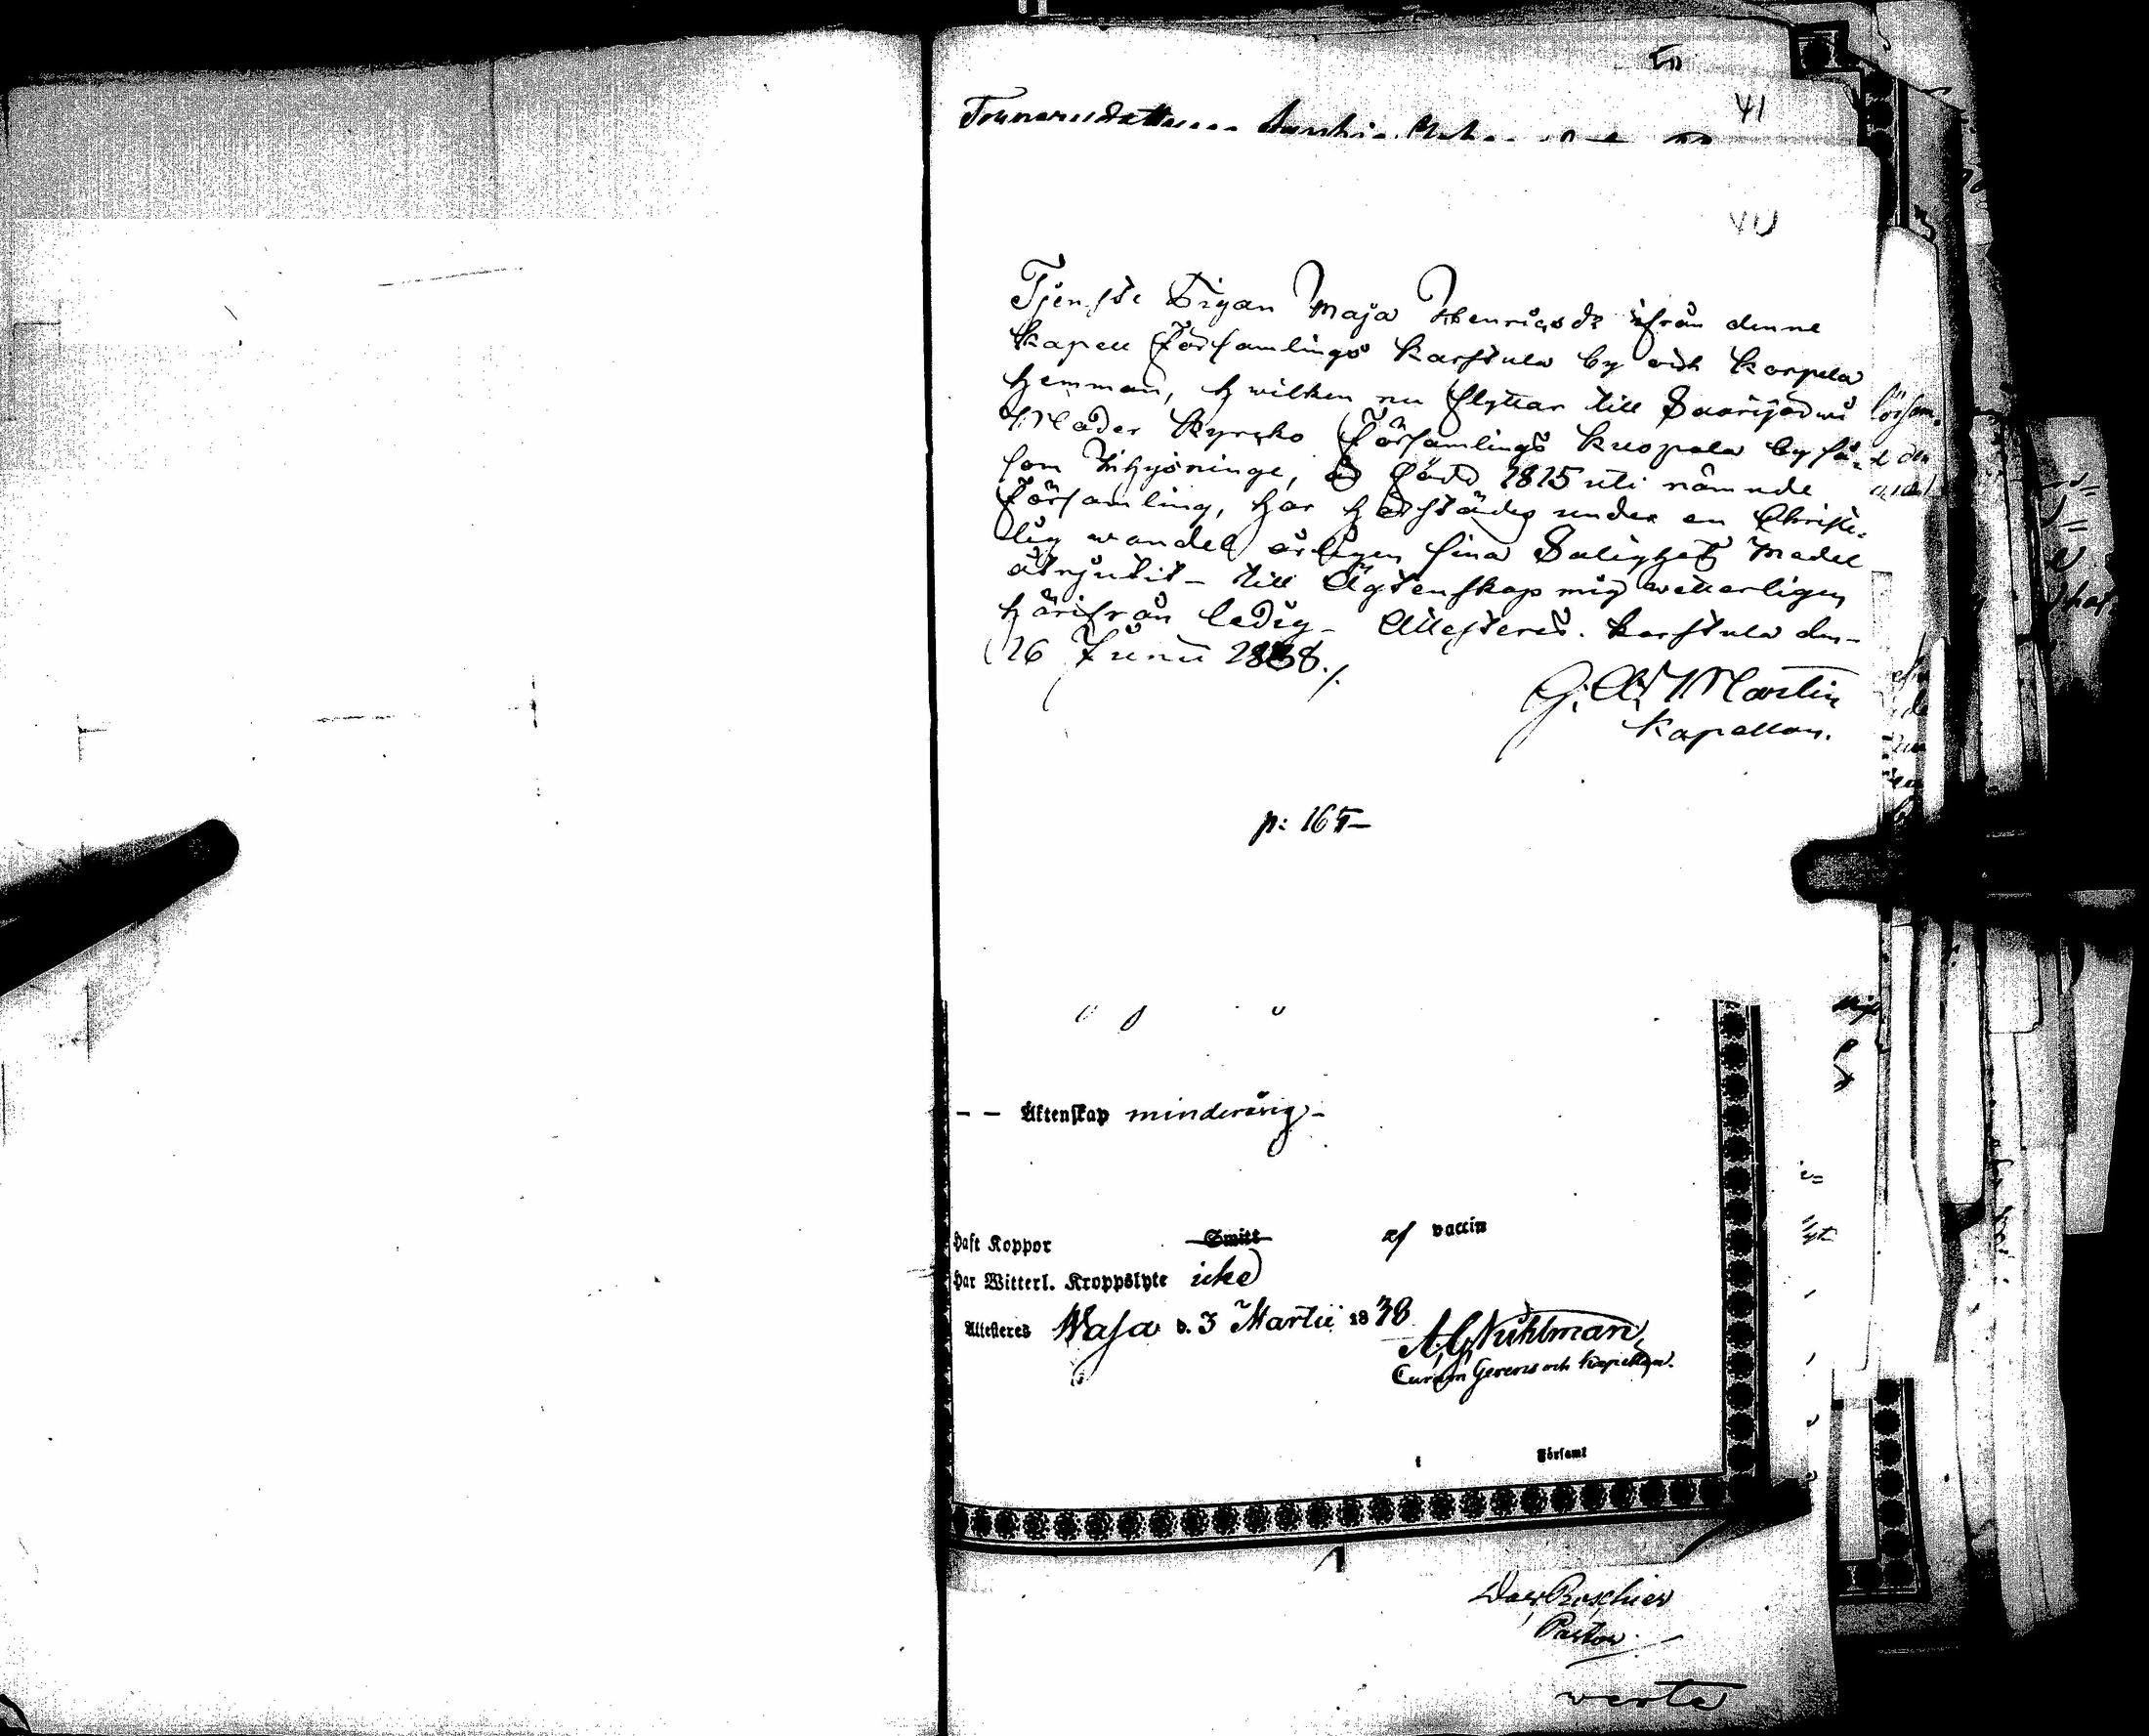 41
Tjenste Pigan Maja Henricsdr ifrån denne
Kapell Församlings Karstula by och Korpela
hemman, hwilken nu flyttar till Saarijärwi
Moder Kyrcko Församlings Kuopala by så-
som Inhysninge, är född 1815 uti nämnde
Församling, har härstädes under en Christe-
lig wandel årligen sina Salighets Medel
åtnjutit - till Ägtenskap mig wetterligen
härifrån ledig - Attesteras. Karstula den -
26 Junii 1838./.
G: A: Martin
Kapellan.
p: 165-
- - Äktenskap minderårig -
Haft Koppor Smitt af vaccin
Har Witterl. Kroppslyte icke
Attesteres Wasa d. 3 Martii 1838
A. G. Kuhlman
Curam Gerens och Kapellan.
Församl
Roschier
Pastor
verte